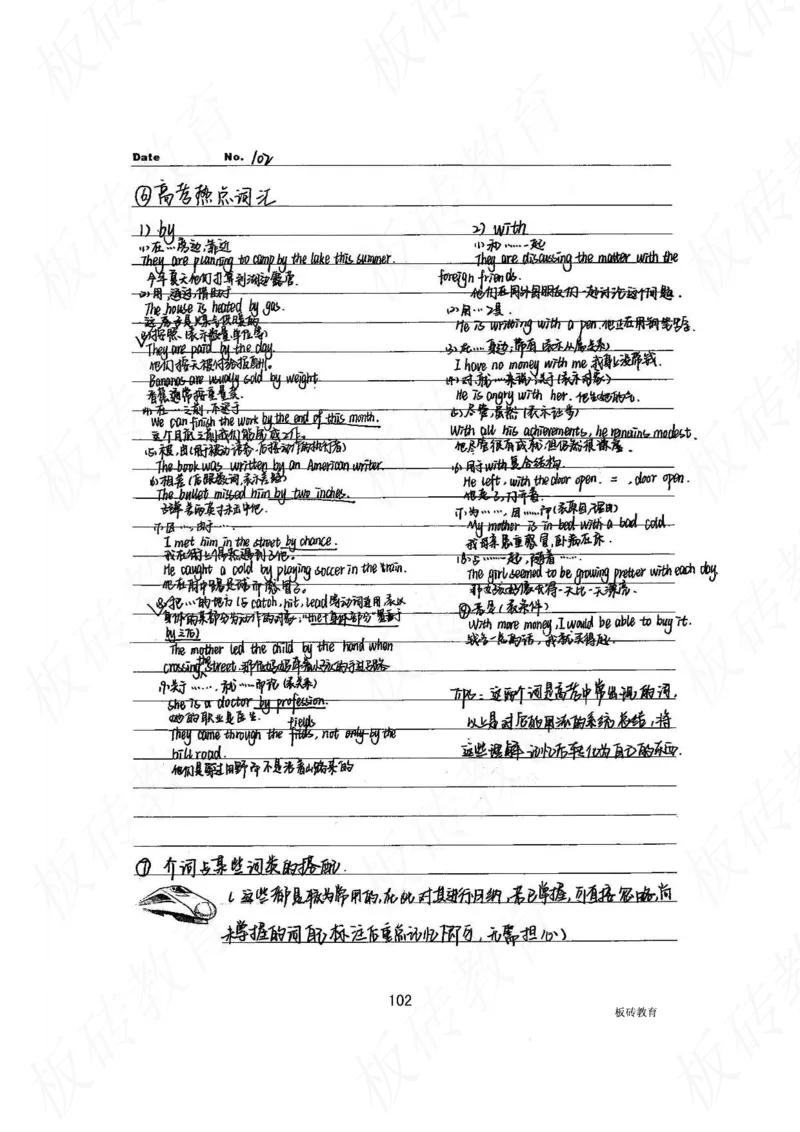 Date No. 102
⑥高考热点词汇
1) by
(1)在…旁边,靠近
They are planning to camp by the lake this summer.
今年夏天他们打算到湖边露营.
(2)用,通过,借助于
The house is heated by gas.
这房子是煤气供暖的
(3)按照(表示数量,单位等)
They are paid by the day.
他们按天被付给报酬.
Bananas are usually sold by weight
香蕉通常按重量卖.
(4)在…之前,不迟于
We can finish the work by the end of this month.
这个月底之前我们能完成工作。
(5)被,由(用于被动语态,后接动作的执行者)
The book was written by an American writer.
(6)相差(后跟数词,表示差额)
The bullet missed him by two inches.
(7)因…,由于…
I met him in the street by chance.
我在街上偶然遇到了他。
He caught a cold by playing soccer in the rain.
他在雨中踢足球而感冒了。
(8)抓…的地方(与catch, hit, lead等动词连用表以
身体的某部分为动作的对象,"the+身体部分"置于
by之后)
The mother led the child by the hand when
crossing the street.
(9)关于……,就……而论(表关系)
She is a doctor by profession.
她的职业是医生.
They came through the fields, not only by the
hill road.
他们是穿过田野而不是沿着山路来的
2) with
(1)和……一起
They are discussing the matter with the
foreign friends.
他们在同外国朋友们一起讨论这个问题.
(2)用…工具
He is writting with a pen.他正在用钢笔写字.
(3)在…身边,带有(表示从属关系)
I have no money with me 我身上没带钱.
(4)对,就…来说,关于(表示对象)
He is angry with her. 他生她的气.
(5)尽管,虽然(表示让步)
With all his achierements, he remains modest.
他尽管很有成就,但仍然很谦虚.
(6)用于with复合结构.
He left, with the door open. = , door open.
他走了,门开着.
(7)为……,因……而(表原因,理由)
My mother is in bed with a bad cold.
我母亲患重感冒,卧病在床.
(8)与……一起,随着……
The girl seemed to be growing pretter with each day.
那女孩好像长得一天比一天漂亮.
⑨若是(表条件)
With more money, I would be able to buy it.
钱多一点的话,我就买得起.
Tips:这两个词是高考中常出现的词,
以上是对它的用法的系统总结,将
这些理解记忆后转化为自己的东西.
⑦ 介词与某些词类的搭配.
(这些都是较为常用的,在此对其进行归纳,若已掌握,可直接忽略,尚
未掌握的词自己标注后重点记忆即可,无需担心)
102
板砖教育